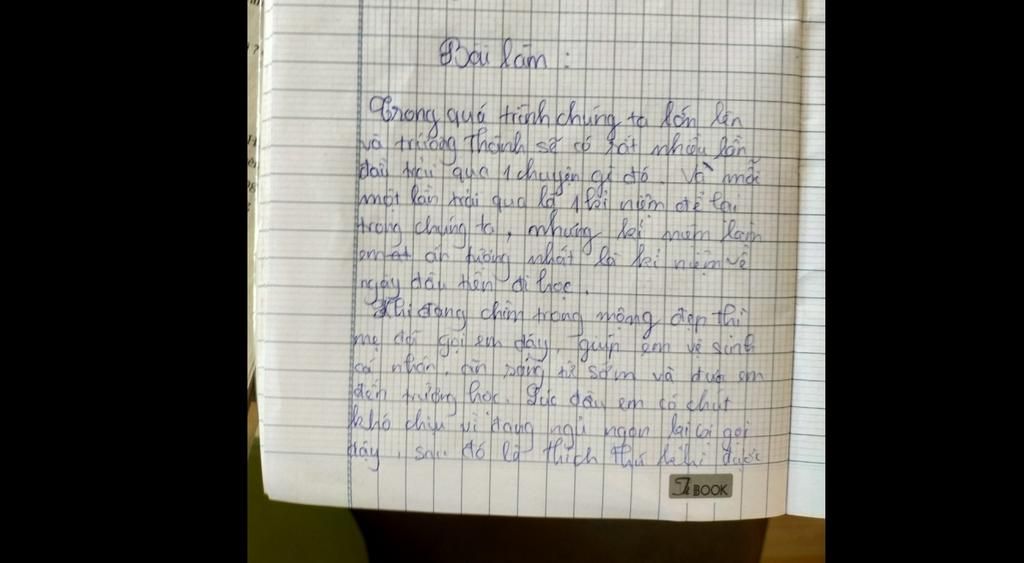 Bài làm :
Trong quá trình chúng ta lớn lên
và trưởng thành sẽ có rất nhiều lần
đầu trải qua 1 chuyện gì đó. Và mỗi
một lần trải qua là 1 kỉ niệm để lại
trong chúng ta, nhưng kỉ niệm làm
em ấn tượng nhất là kỉ niệm về
ngày đầu tiên đi học.
Khi đang chìm trong mộng đẹp thì
mẹ đã gọi em dậy, giúp em vệ sinh
cá nhân, ăn sáng từ sớm và đưa em
đến trường học. Lúc đầu em có chút
khó chịu vì đang ngủ ngon lại bị gọi
dậy, sau đó là thích thú khi được
TK BOOK